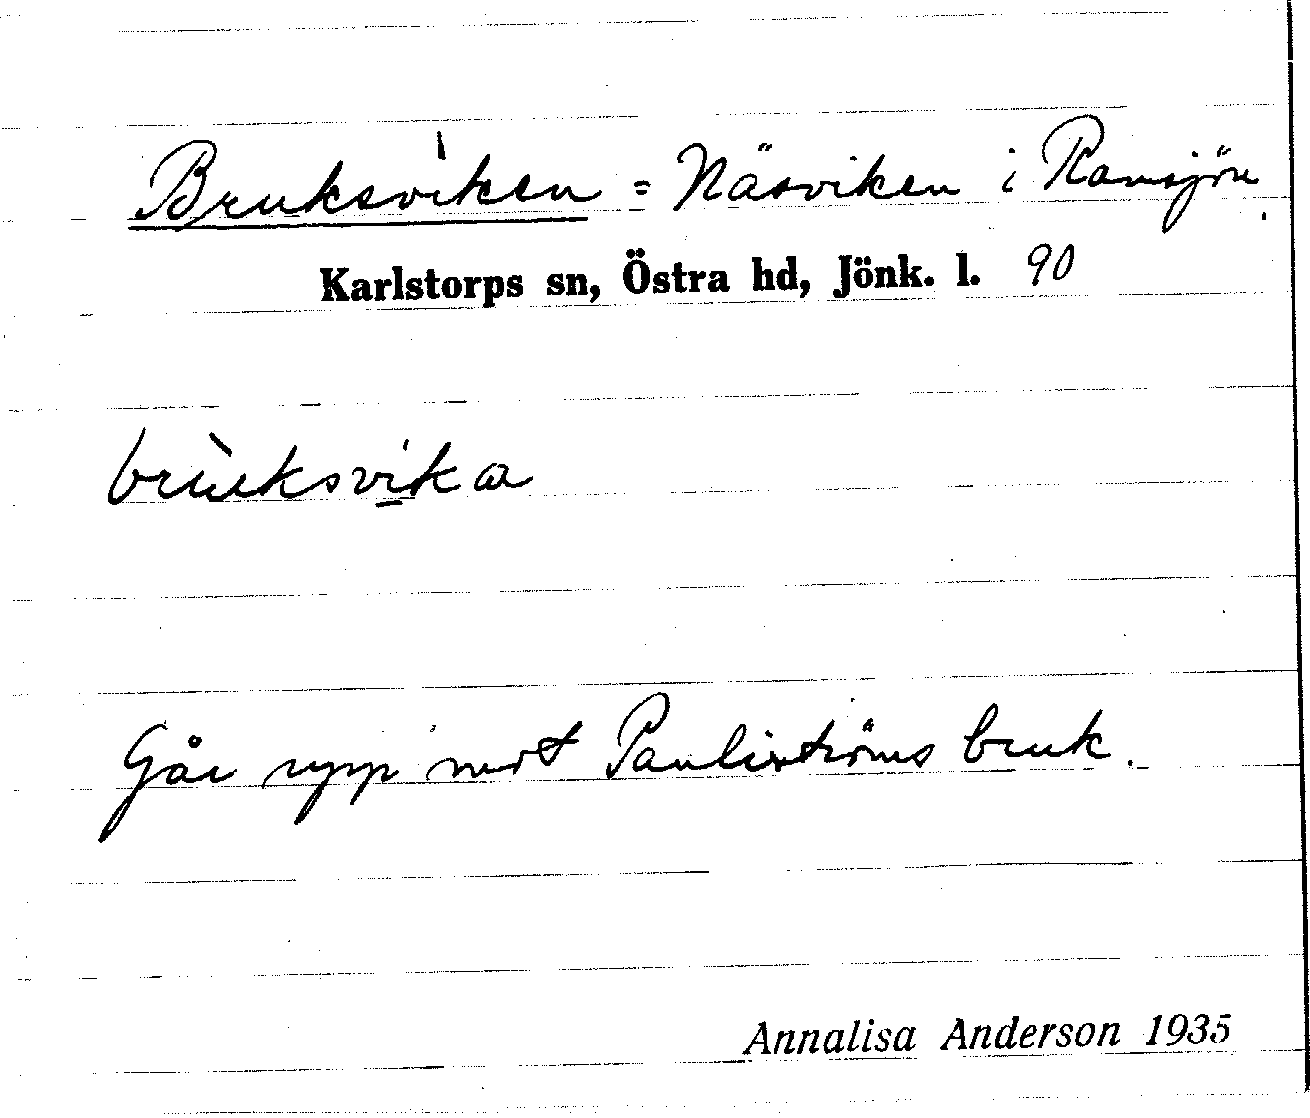 Bruksviken = Näsviken i Ramsjön.
Karlstorps sn, Östra hd, Jönk. l. 90
brùksvika
Går upp mot Pauliströms bruk.
Annalisa Anderson 1935